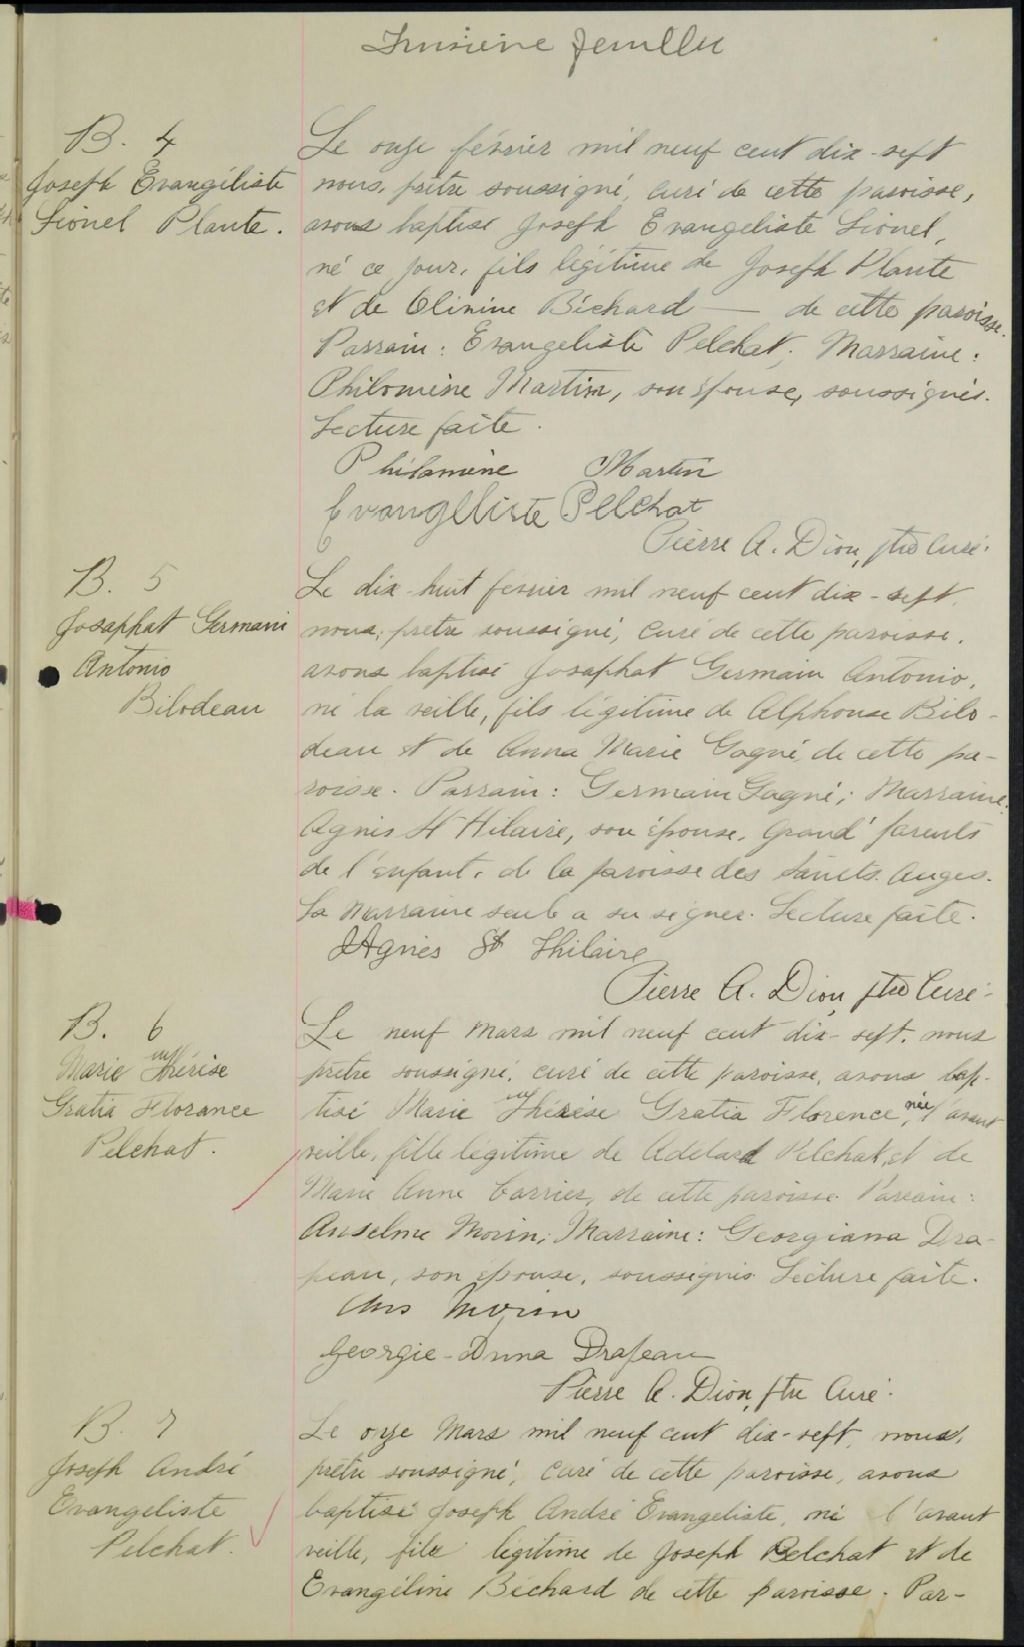 Troisième feuillet
B. 4
Joseph Evangéliste
Lionel Plante.
Le onze février mil neuf cent dix-sept
nous, prêtre soussigné, curé de cette paroisse,
avons baptisé Joseph Evangeliste Lionel,
né ce jour, fils légitime de Joseph Plante
et de Olivine Béchard — de cette paroisse.
Parrain: Evangeliste Pelchat; Marraine:
Philomène Martin, son épouse, soussignés.
Lecture faite.
Philamène Martin
Evangeliste Pelchat
Pierre A. Dion, ptre Curé.
B. 5
Josaphat Germain
Antonio
Bilodeau
Le dix-huit février mil neuf cent dix-sept,
nous, prêtre soussigné, curé de cette paroisse,
avons baptisé Josaphat Germain Antonio,
né la veille, fils légitime de Alphonse Bilo-
deau et de Anna Marie Gagné, de cette pa-
roisse. Parrain: Germain Gagné; Marraine:
Agnès St Hilaire, son épouse, Grand' parents
de l'enfant, de la paroisse des Saints Anges.
La Marraine seule a su signer. Lecture faite.
Agnès St Hhilaire
Pierre A. Dion, ptre Curé.
B. 6
Marie Thérèse
Gratia Florance
Pelchat.
Le neuf mars mil neuf cent dix-sept, nous
prêtre soussigné, curé de cette paroisse, avons bap-
tisé Marie Thérèse Gratia Florence, née l'avant
veille, fille légitime de Adélard Pelchat, et de
Marie Anne Carrier, de cette paroisse. Parrain:
Anselme Morin; Marraine: Georgianna Dra-
peau, son épouse, soussignés. Lecture faite.
Ans Morin
Georgie-Anna Drapeau
Pierre A. Dion, ptre Curé.
B. 7
Joseph André
Evangeliste
Pelchat.
Le onze Mars mil neuf cent dix-sept, nous,
prêtre soussigné, curé de cette paroisse, avons
baptisé Joseph André Evangeliste, né l'avant
veille, fils légitime de Joseph Pelchat et de
Evangéline Béchard de cette paroisse. Par-